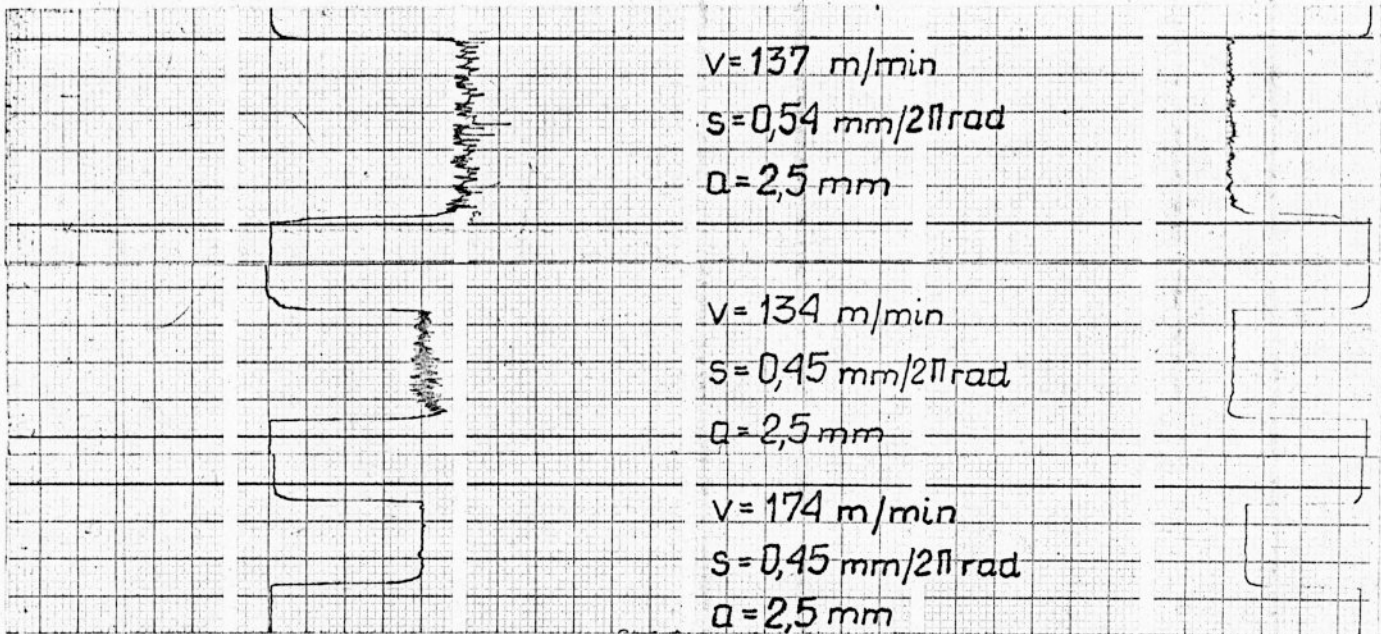 v = 137 m/min
s = 0,54 mm/2Π rad
a = 2,5 mm
v = 134 m/min
s = 0,45 mm/2Π rad
a = 2,5 mm
v = 174 m/min
s = 0,45 mm/2Π rad
a = 2,5 mm